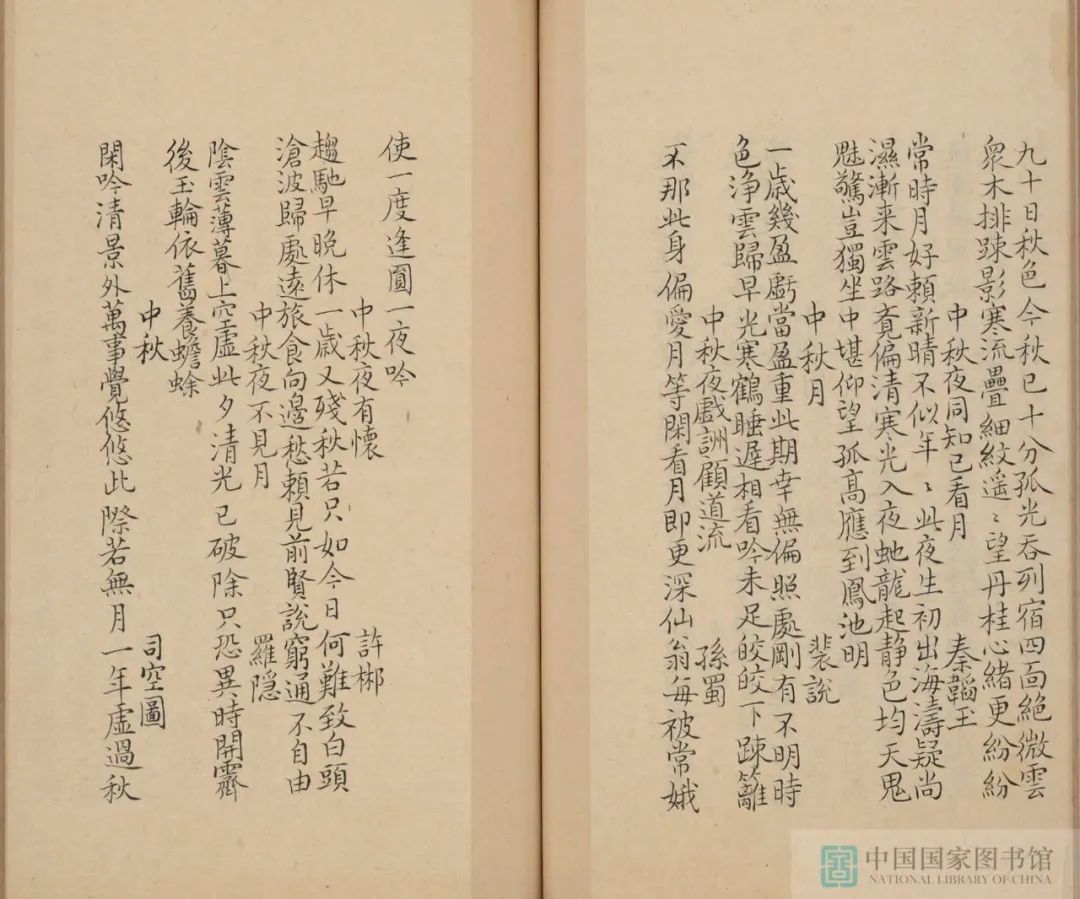 九十日秋色今秋已十分孤光吞列宿四面絕微雲
衆木排踈影寒流疊細紋遥〻望丹桂心緒更紛紛
中秋夜同知己看月 秦韜玉
常時月好賴新晴不似年〻此夜生初出海濤疑尚
濕漸来雲路覔偏清寒光入夜虵龍起静色均天鬼
魅驚豈獨坐中堪仰望孤高應到鳳池明
中秋月 裴説
一歳幾盈虧當盈重此期幸無偏照處剛有不明時
色浄雲歸早光寒鶴睡遲相看吟未足皎皎下踈籬
中秋夜戲詶顧道流 孫蜀
不那此身偏愛月等閑看月即更深仙翁每被常娥
使一度逢圓一夜吟
中秋夜有懷 許郴
趨馳早晚休一歳又殘秋若只如今日何難致白頭
滄波歸處遠旅食向邊愁頼見前賢説窮通不自由
中秋夜不見月 羅隱
陰雲薄暮上空虛此夕清光已破除只恐異時開霽
後玉輪依舊養蟾蜍
中秋 司空圖
閑吟清景外萬事覺悠悠此際若無月一年虛過秋
中国国家图书馆
NATIONAL LIBRARY OF CHINA